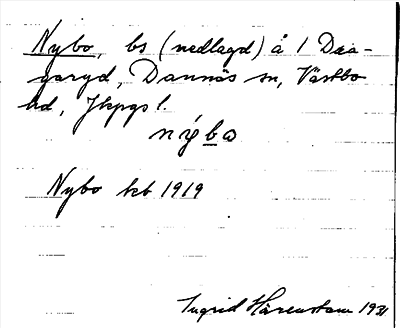 Nybo, bs (nedlagd) å 1 Dra-
garyd, Dannäs sn, Västbo
hd, Jkpgs l.
nýbo
Nybo kb 1919
Ingrid Härenstam 1931